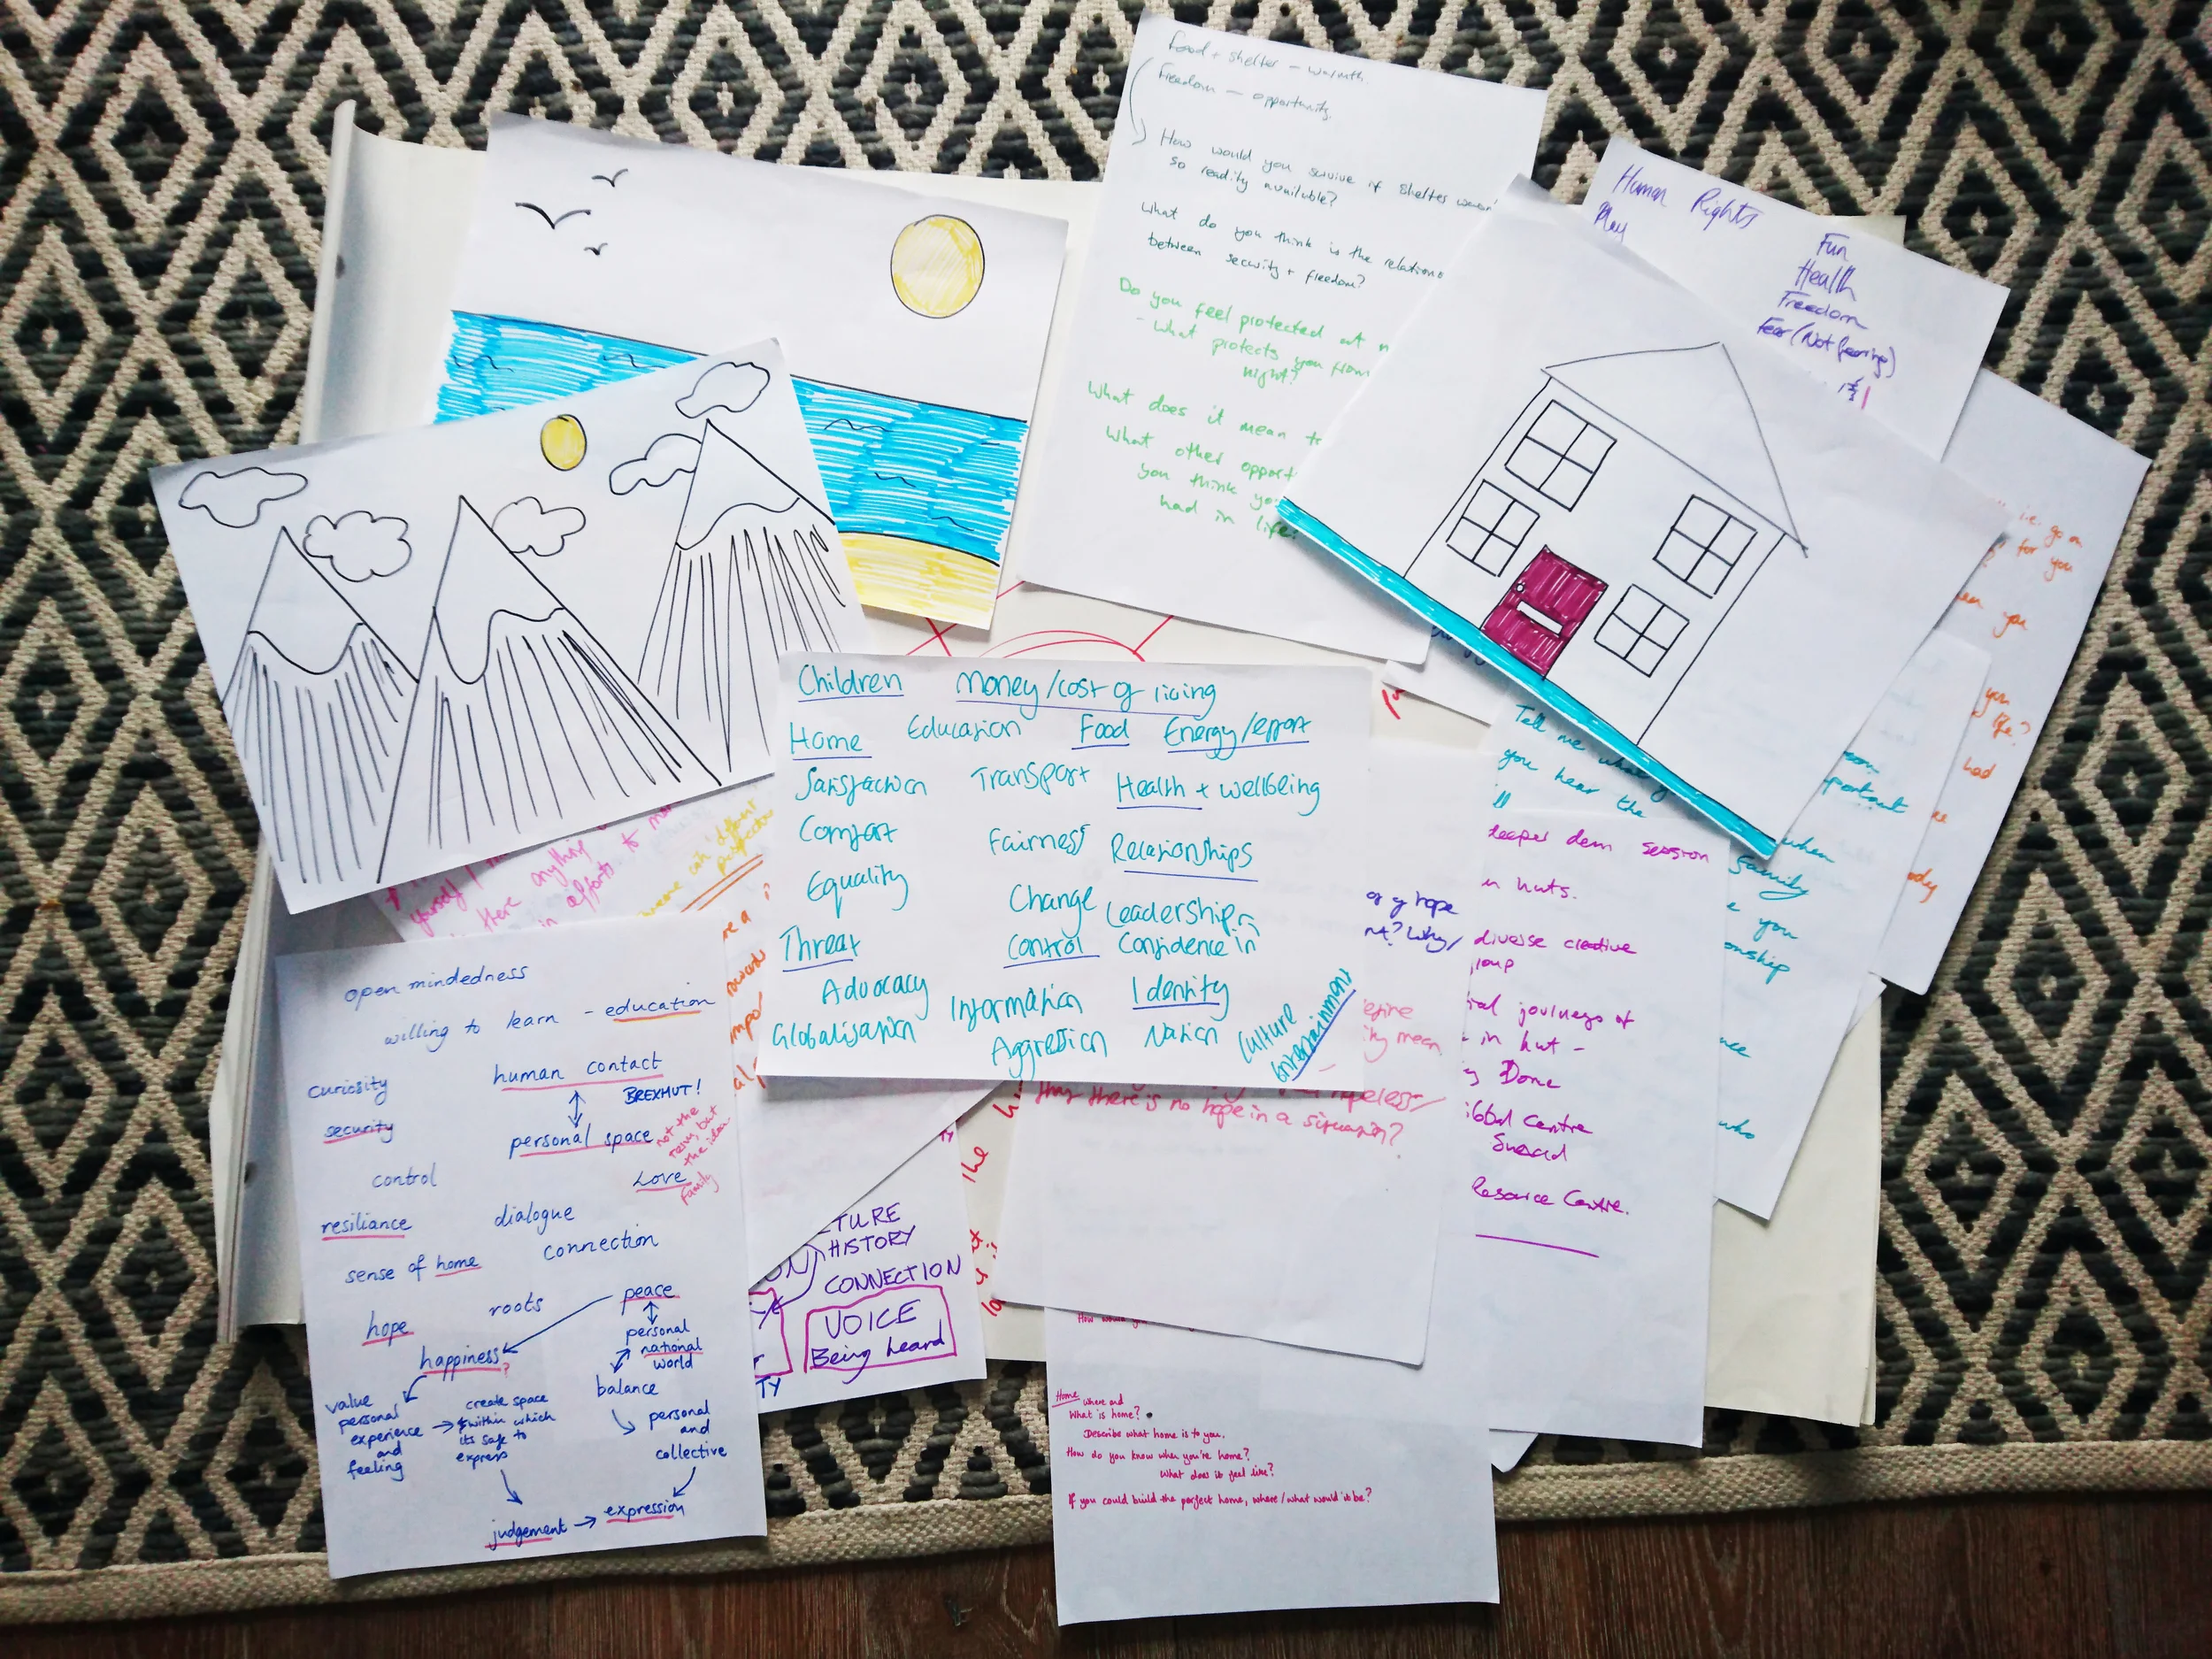 Food + shelter - warmth.
Freedom - opportunity.
How would you survive if shelter
so readily available?
What do you think is the
between security + freedom?
Do you feel protected at
- What protects you from
night?
What does it mean
What other
you think
had in life?
Human Rights
Play
Fun
Health
Freedom
Fear (Not fearing)
i.e. go on
for you
you
you
life?
had
Tell me what
you hear the
deeper dem session
in huts.
diverse creative
journeys of
in hut -
Done
Centre
Resource Centre.
when
family
you
who
Children Money/cost of living
Home Education Food Energy/effort
Satisfaction Transport Health + wellbeing
Comfort Fairness Relationships
Equality Change Leadership
Threat Control Confidence in
Advocacy Information Identity
Globalisation Aggression Nation Culture
Entertainment
of hope
Why
mean
there is no hope in a situation?
yourself
there anything
in efforts to
open mindedness
willing to learn - education
human contact
curiosity BREXHUT!
security personal space
not the
room, but
the idea
control Love
Family
resiliance dialogue
connection
sense of home
roots peace
hope personal
national
world
happiness?
balance
value
personal
experience
and
feeling
create space
within which
its safe to
express
personal
and
collective
judgement → expression
HISTORY
CONNECTION
VOICE
Being heard
Home where and
What is home?
Describe what home is to you.
How do you know when you're home?
What does it feel like?
If you could build the perfect home, where/what would it be?